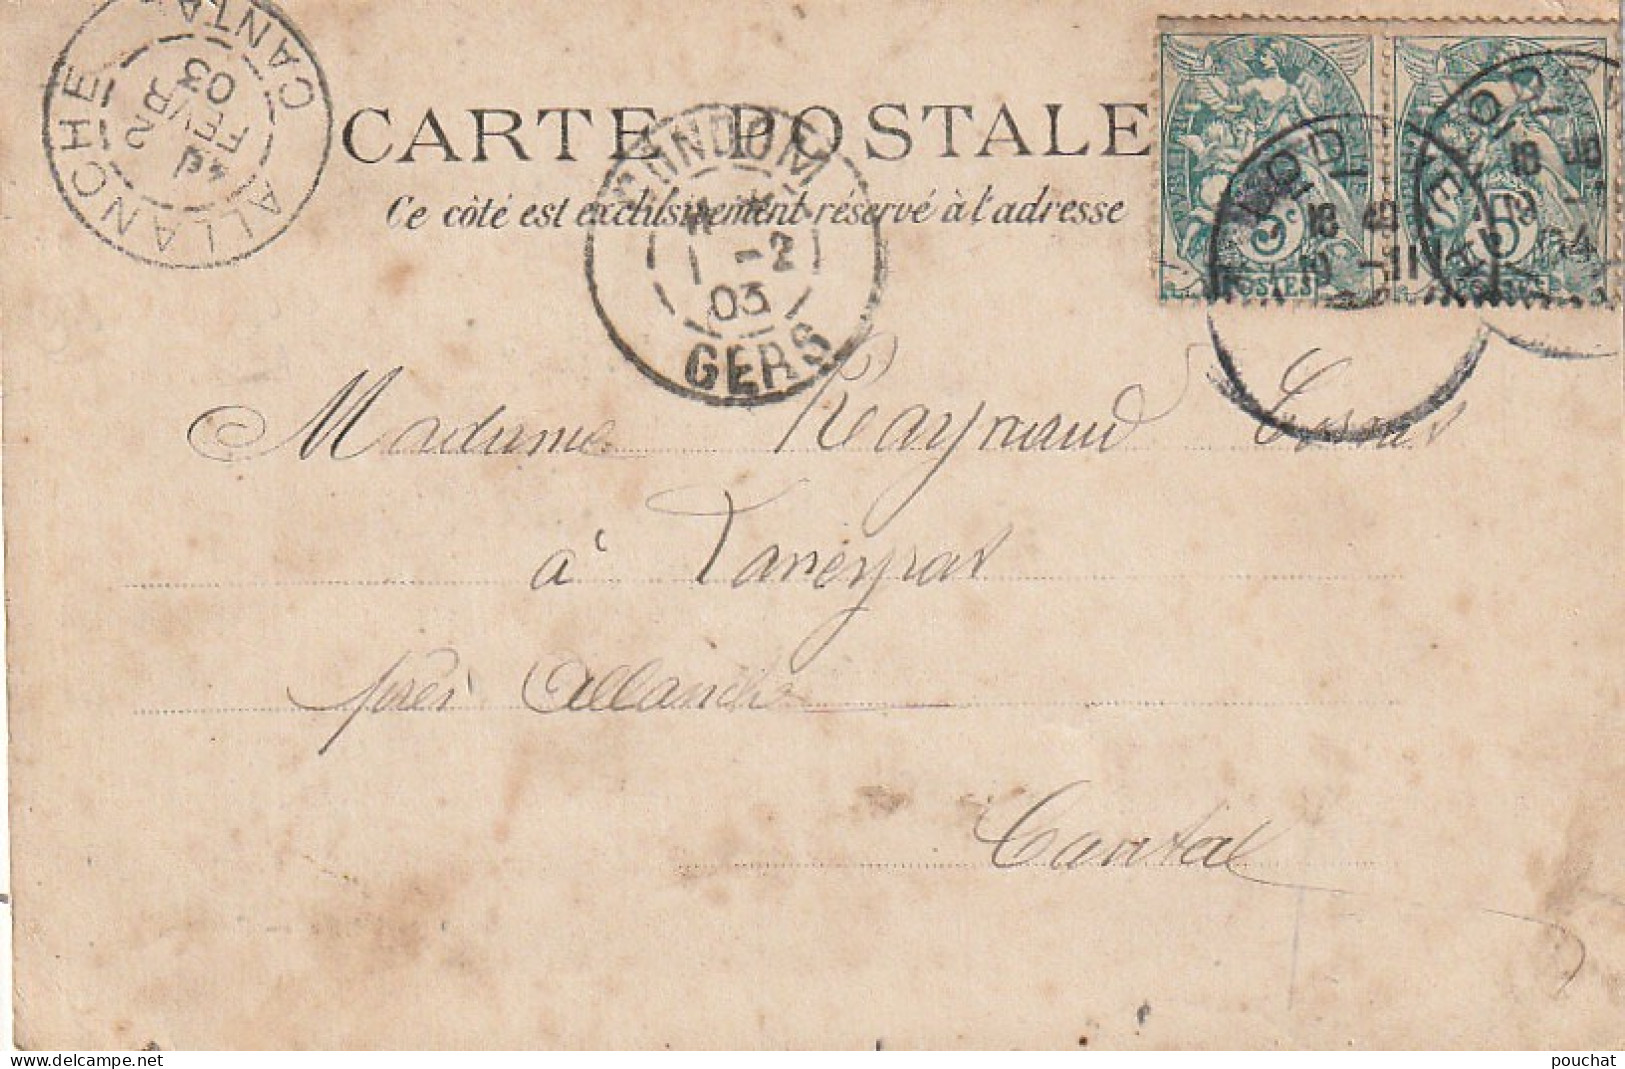 CARTE POSTALE
Ce côté est exclusivement réservé à l'adresse
ALLANCHE CANTAL
2 FEVR 03
CONDOM
1 -2
03
GERS
5c
POSTES
5c
POSTES
18 40
Madame Raynaud
à Vaneyrat
près Allanche
Cantal
www.delcampe.net
pouchat